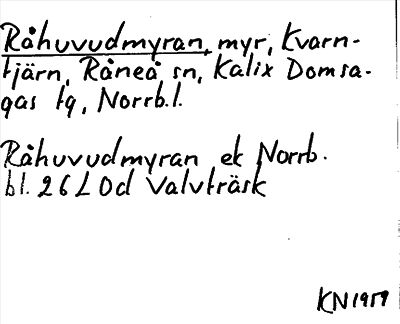 Råhuvudmyran, myr, Kvarn-
tjärn, Råneå sn, Kalix Domsa-
gas tg, Norrb.l.
Råhuvudmyran ek Norrb.
bl. 26L0d Valvträsk
KN1959